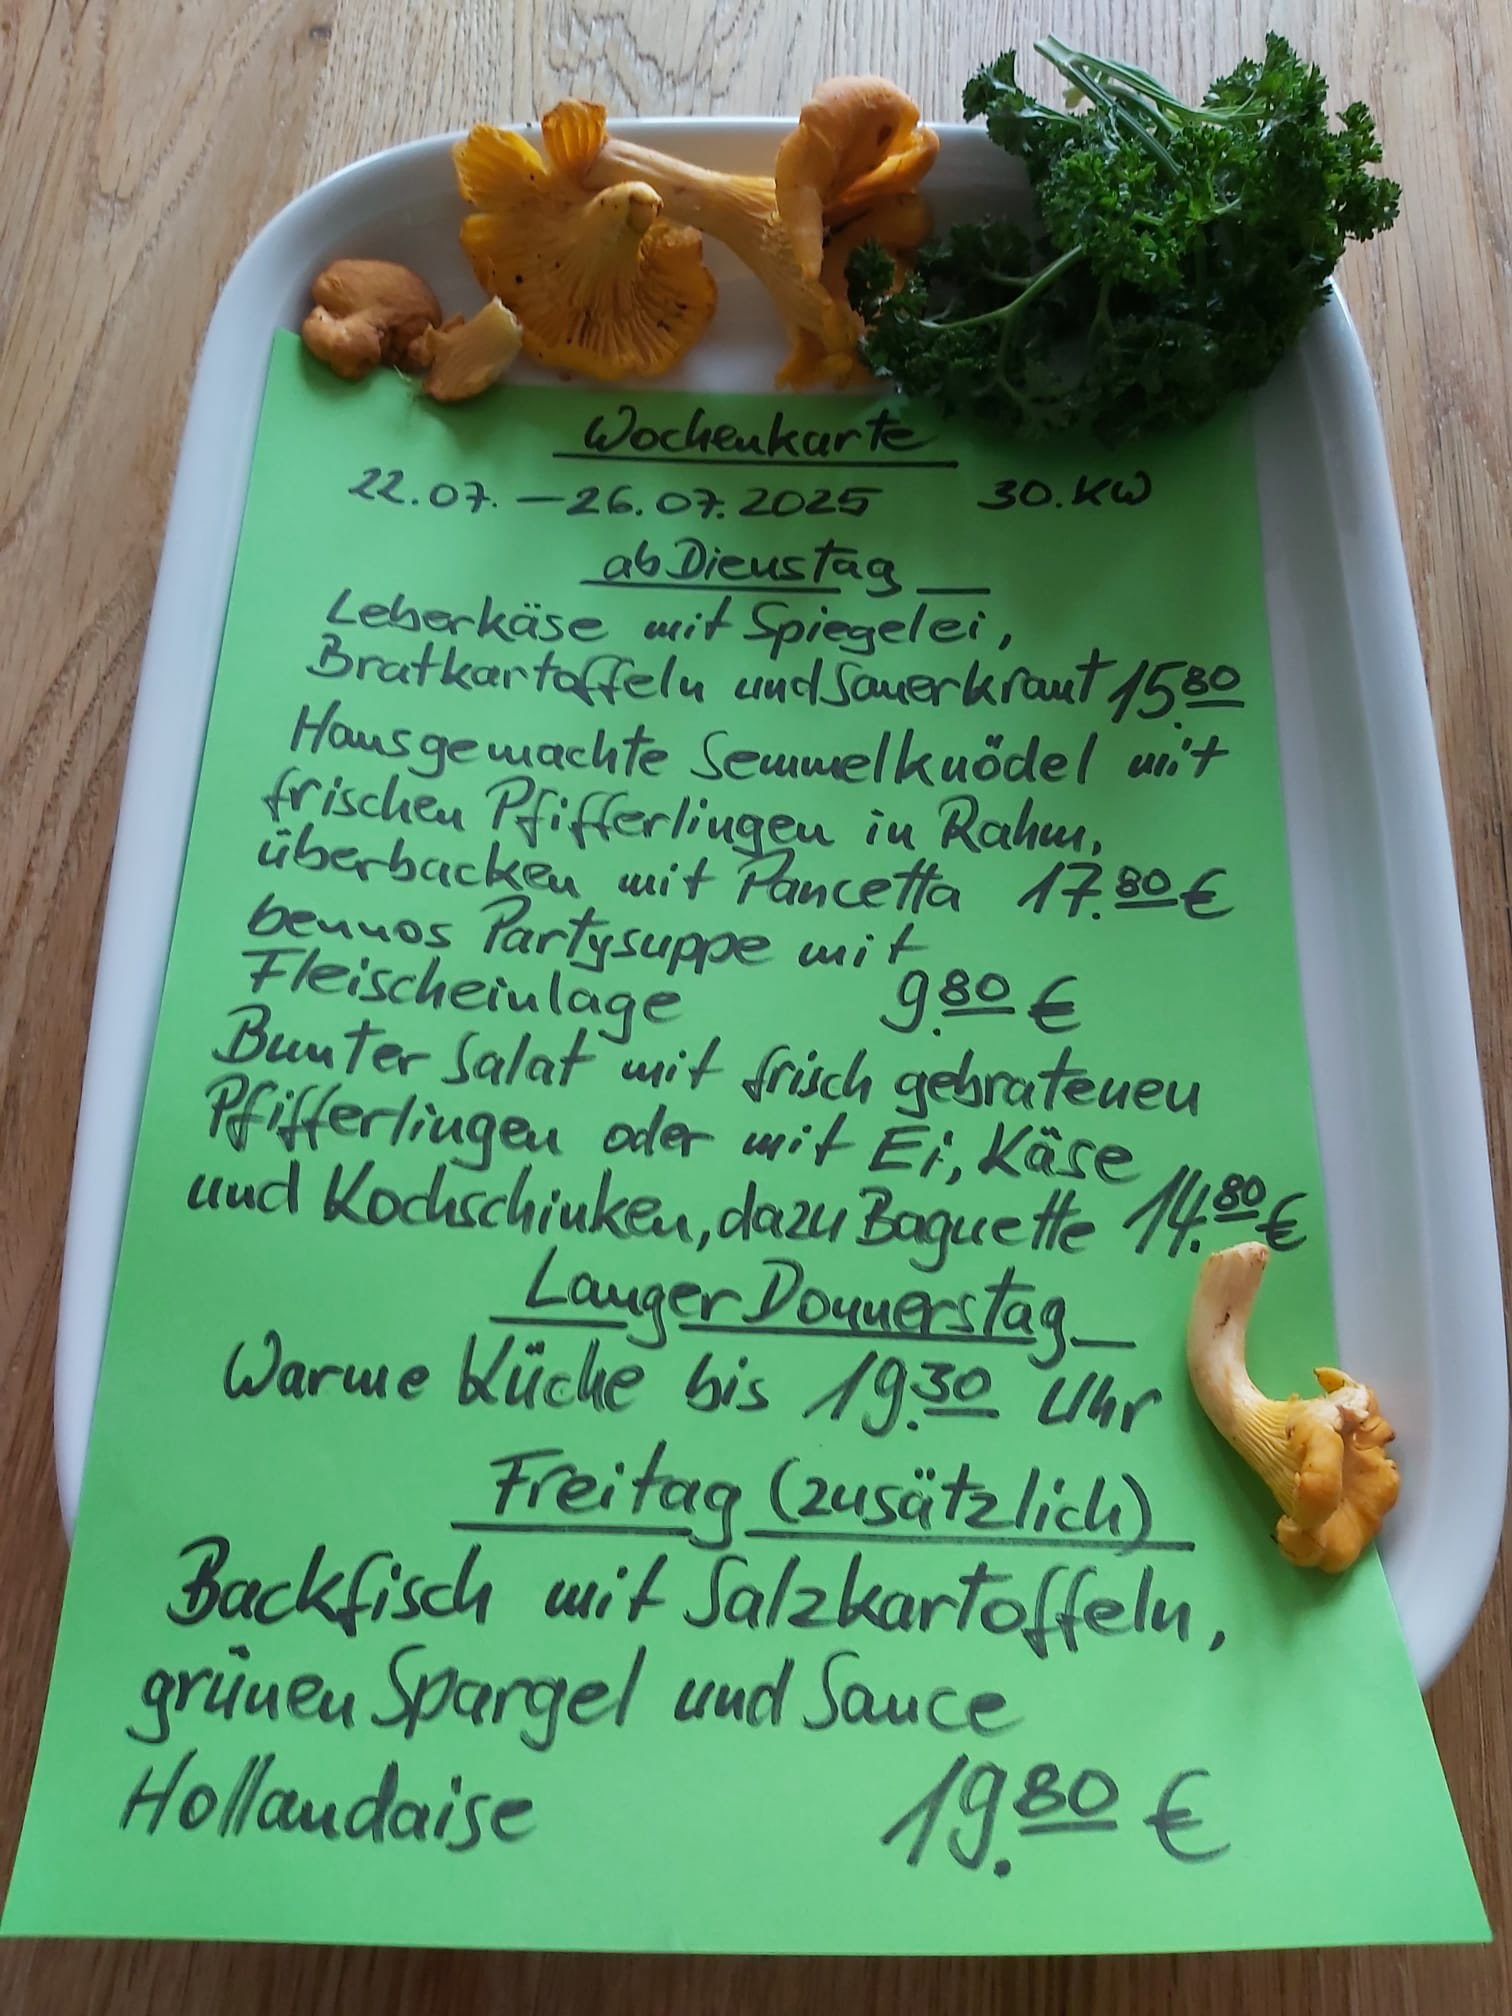 Wochenkarte
22.07. – 26.07.2025 30. KW
ab Dienstag
Leberkäse mit Spiegelei,
Bratkartoffeln und Sauerkraut 15.80
Hausgemachte Semmelknödel mit
frischen Pfifferlingen in Rahm,
überbacken mit Pancetta 17.80 €
bennos Partysuppe mit
Fleischeinlage 9.80 €
Bunter Salat mit frisch gebratenen
Pfifferlingen oder mit Ei, Käse
und Kochschinken, dazu Baguette 14.80 €
Langer Donnerstag
Warme Küche bis 19.30 Uhr
Freitag (zusätzlich)
Backfisch mit Salzkartoffeln,
grünen Spargel und Sauce
Hollandaise 19.80 €